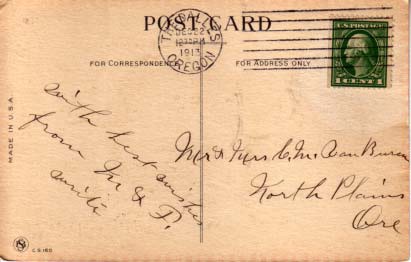 POST CARD
THE DALLES
DEC 22
12 30 PM
1913
OREGON
U.S. POSTAGE
1 CENT 1
FOR CORRESPONDENCE
FOR ADDRESS ONLY
MADE IN U.S.A.
with best wishes
from M & P.
write
Mr & Mrs C. M. Van Buren
North Plains
Ore
C.S. 160